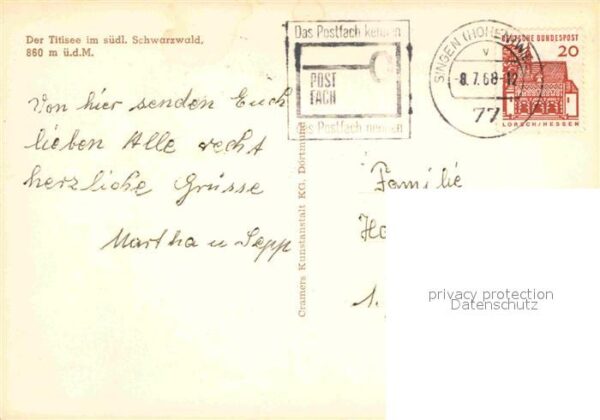 Der Titisee im südl. Schwarzwald,
860 m ü.d.M.
Das Postfach kennen
POST
FACH
das Postfach nennen
SINGEN (HOHENTWIEL)
v
-8.7.68-12
77
DEUTSCHE BUNDESPOST
20
LORSCH/HESSEN
Von hier senden Euch
lieben Alle recht
herzliche Grüsse
Martha u Sepp
Cramers Kunstanstalt KG. Dortmund
Familie
privacy protection
Datenschutz